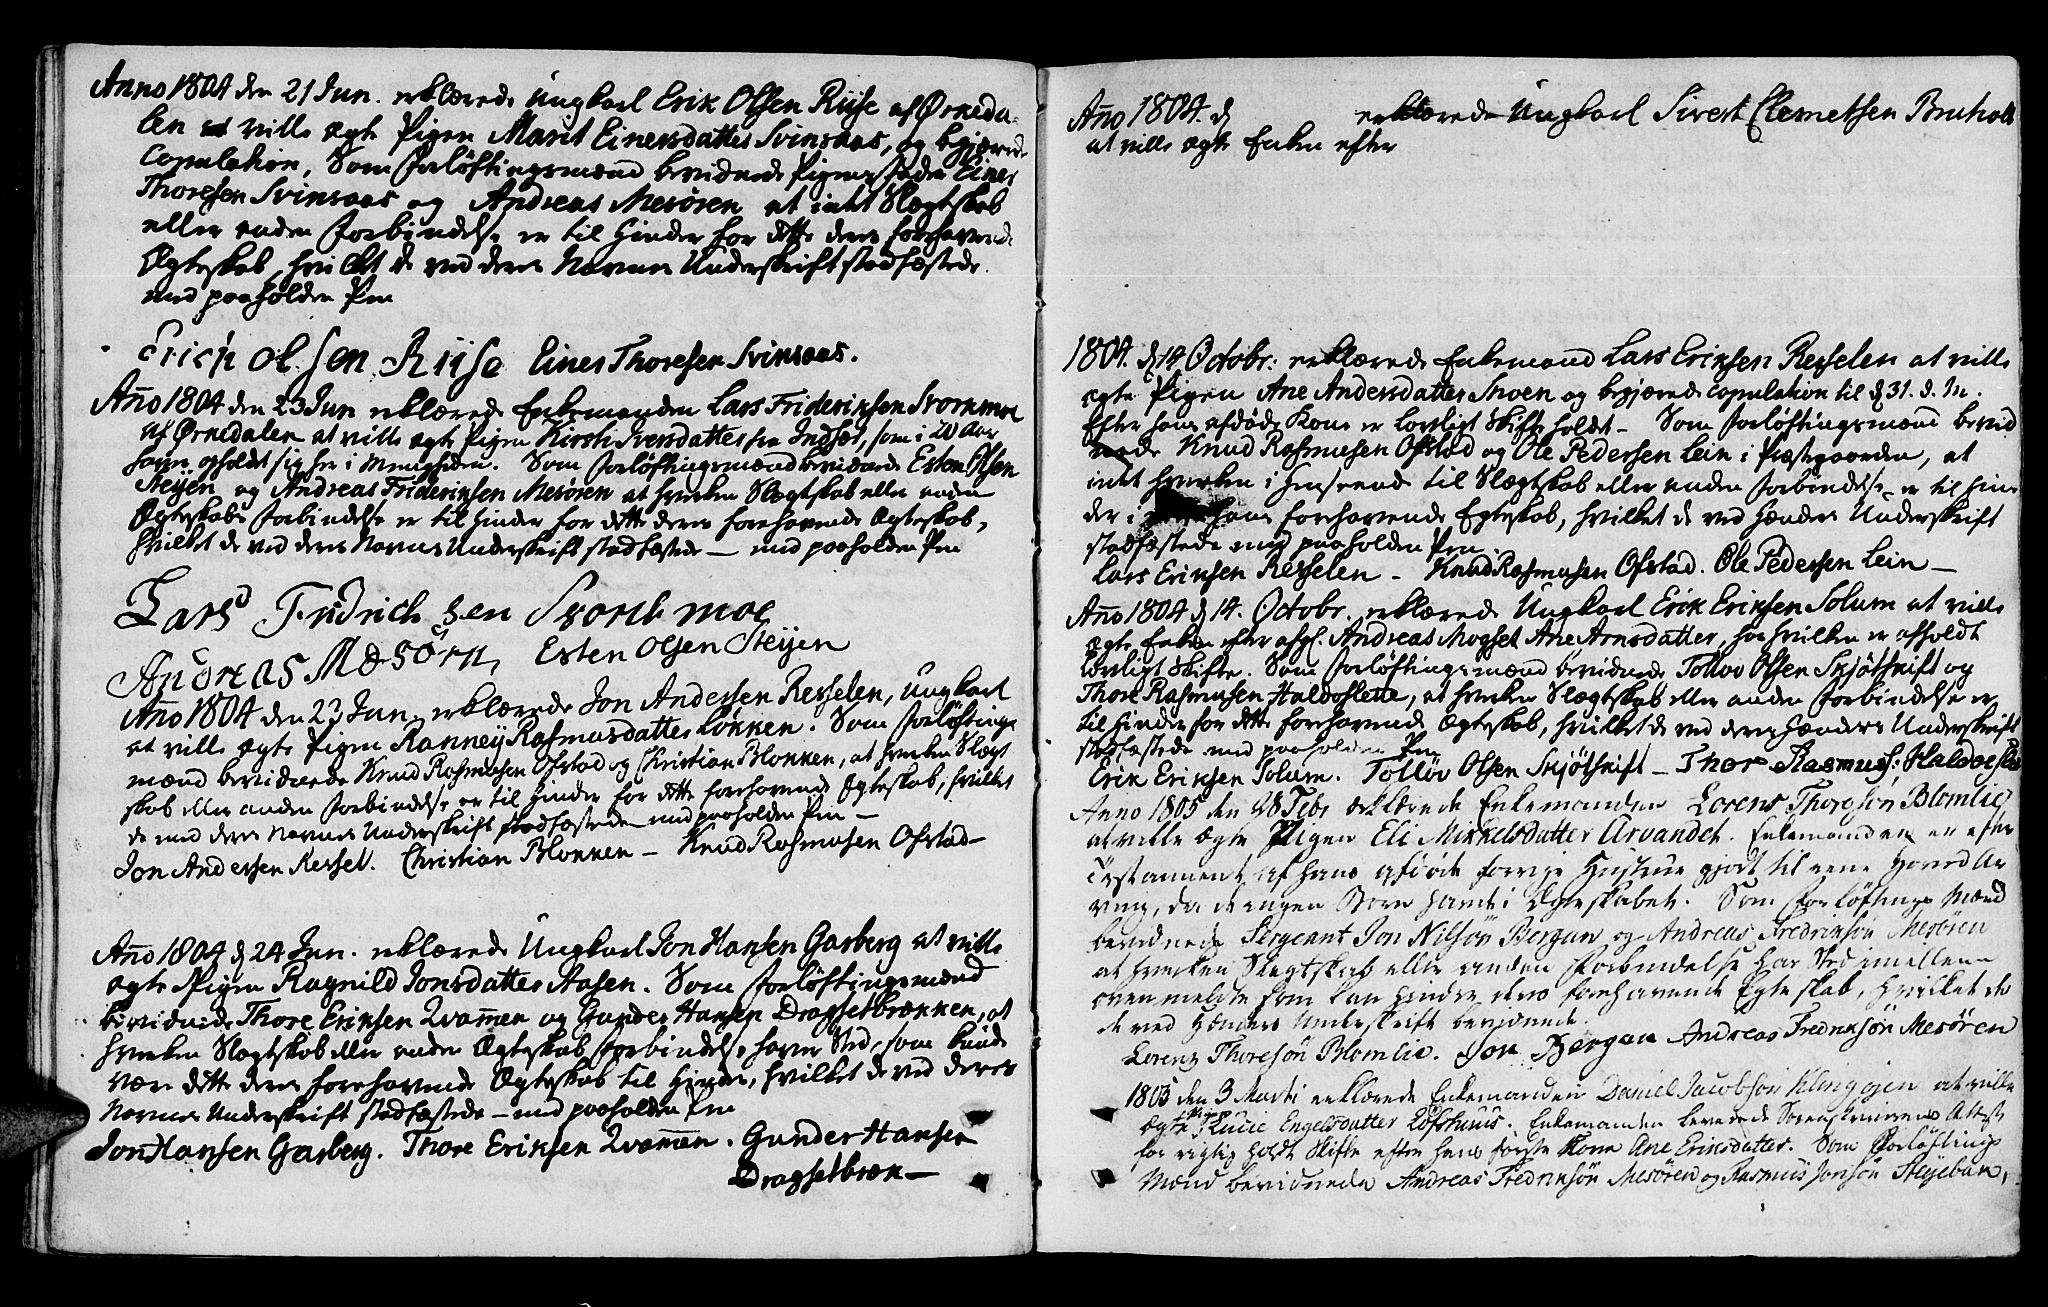 Anno 1804 den 21 Jun. erklærede Ungkarl Erik Olsen Riise af Ørneda-
len at ville ægte Pigen Marit Einersdatter Svinsaas, og begjærede
Copulation, Som Forløftingsmænd bevidnede Pigens Fader Einer
Thoresen Svinsaas og Andreas Mesøren at intet Slægtskab
eller anden Forbindelse er til Hinder for dette deres forehavende
Ægteskab, hvilket de ved deres Navnes Underskrift stadfæstede
med paaholden Pen
Erich Olsen Riise Einer Thoresen Svinsaas.
Año 1804 den 23 Jun erklærede Enkemanden Lars Friderichsen Svorkmoe
af Ørnedalen at ville ægte Pigen Kirsti Iversdatter fra Indset, som i 20 Aar
have opholdt sig her i Menigheden. Som Forløftingsmænd bevidnede Esten Olsen
Steijen og Andreas Friderichsen Mesøren at hverken Slægtskab eller anden
Ægteskabs Forbindelse er til Hinder for dette deres forehavende Ægteskab,
hvilket de ved deres Navnes Underskrift stadfæstede — med paaholden Pen
Lars Fridrich sen Svork moe
Andreas Mesörn, Esten Olsen Steijen
Año 1804 den 23 Jun erklærede Jon Andersen Resselen, Ungkarl
at ville ægte Pigen Ranneij Rasmusdatter Løkken. Som Forløftings
mænd bevidnede Knud Rasmusen Ofstad og Christian Blokken, at hverken Slægt
skab eller anden Forbindelse er til Hinder for dette forehavende Ægteskab, hvilket
de med deres Navnes Underskrift stadfæstede med paaholden Pen —
Jon Andersen Ressel. Christian Blokken — Knud Rasmusen Ofstad —
Año 1804 d 24 Jun. erklærede Ungkarl Jon Hansen Garberg at ville
ægte Pigen Ragnild Jonsdatter Aasen. Som Forløftingsmænd
bevidnede Thore Eriksen Qvam̄en og Gunder Hansen Dragsetbrækken, at
hverken Slægtskab eller anden Ægteskabs Forbindelse haver Sted, som kunde
være dette deres forehavende Ægteskab til Hinder, hvilket de ved deres
Navnes Underskrift stadfæstede — med paaholden Pen
Jon Hansen Garberg. Thore Eriksen Qvam̄en. Gunder Hansen
Dragsetbræk —
Año 1804. d erklærede Ungkarl Sivert Clemetsen Bruholt
at ville ægte Enken efter
1804. d 14 Octobr: erklærede Enkemand Lars Eriksen Resselen at ville
ægte Pigen Ane Andersdatter Moen og begjærede copulation til d 31. d. M.
Efter hans afdøde Kone er lovligt Skifte holdt — Som Forløftingsmænd bevid
nede Knud Rasmusen Ofstad og Ole Pedersen Lein i Præstgaarden, at
intet hverken i Henseende til Slægtskab eller anden Forbindelse er til Hin
der i hans forehavende Egteskab, hvilket de ved Hænders Underskrift
stadfæstede med paaholden Pen
Lars Eriksen Resselen — Knud Rasmusen Ofstad. Ole Pedersen Lein —
Año 1804 d 14. Octobr. erklærede Ungkarl Erik Eriksen Solum at ville
ægte Enken efter afgl. Andreas Mogset Ane Arnsdatter, for hvilken er afholdt
lovligt Skifte. Som Forløftingsmænd bevidnede Tolløv Olsen Skjøtskift og
Thore Rasmusen Haldoslette, at hverken Slægtskab eller anden Forbindelse er
til Hinder for dette forehavende Ægteskab, hvilket de ved deres Hænders Underskrift
stadfæstede med paaholden Pen
Erik Eriksen Solum. Tolløv Olsen Skjøtskift — Thor Rasmuss: Haldosle
Anno 1805 den 28 Febr erklærede Enkemanden Lorens Thoresøn Blomlie
at ville ægte Pigen Eli Mikkelsdatter Arvandet. Enkemanden er efter
Testament af hans afdøde forrige Hustrue gjort til eene Hoved Ar
ving, da de ingen Børn havde i Ægteskabet. Som Forløftings Mænd
bevidnede Sergeant Jon Nilsøn Bergan og Andreas Fredriksøn Mesøren
at hverken Slegtskab eller anden Forbindelse har Sted imellem
ovenmeldte som kan hindre deres forehavende Egteskab, hvilket de
de ved Hænders Underskrift bevidnede.
Lorenz Thoresøn Blomlie. Jon Bergan Andreas Fredriksøn Mesøren
1805 den 3 Marti erklærede Enkemanden Daniel Jacobsøn Klingøjen at ville
ægte Pigen Lucie Engelsdatter Lofshuus. Enkemanden leverede Sorenskriverens Attest
for rigtig holdt Skifte efter hans første Kone Ane Eriksdatter. Som Forløftings
Mænd bevidnede Andreas Fredriksøn Mesøren og Rasmus Jonsøn Steijebun,